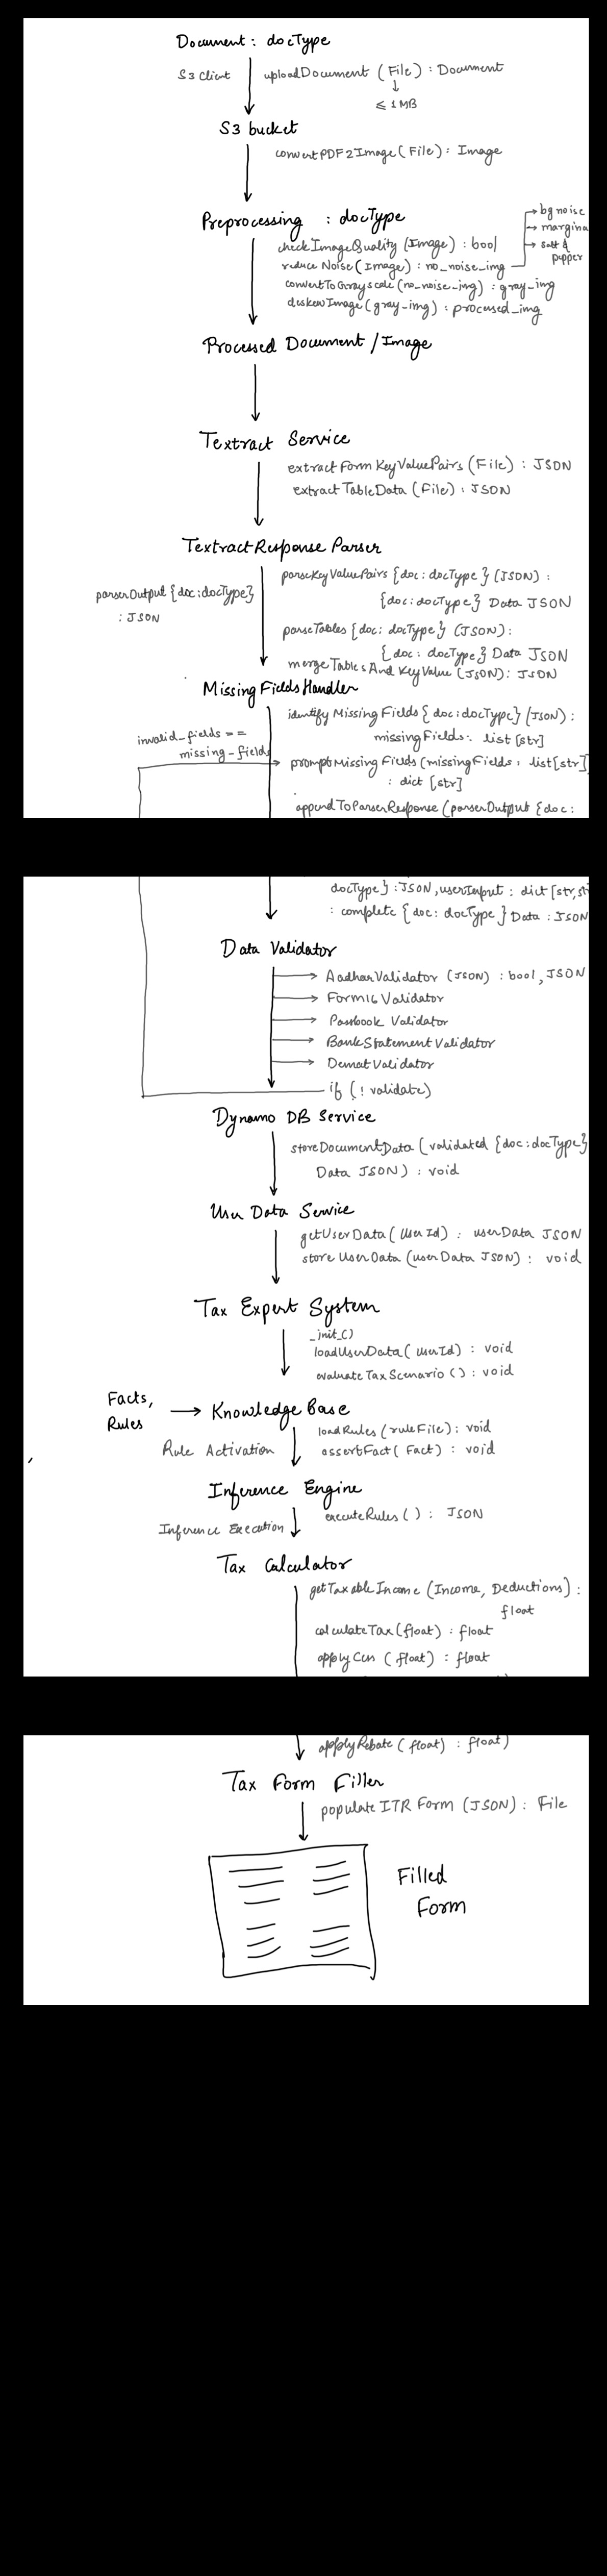 Document : docType
S3 Client
uploadDocument (File) : Document
≤ 1 MB
S3 bucket
convertPDF2Image (File) : Image
Preprocessing : docType
checkImageQuality (Image) : bool
reduceNoise (Image) : no_noise_img
bg noise
margina
salt &
pepper
convertToGrayscale (no_noise_img) : gray_img
deskewImage (gray_img) : processed_img
Processed Document / Image
Textract Service
extractFormKeyValuePairs (File) : JSON
extractTableData (File) : JSON
TextractResponse Parser
parserOutput {doc:docType}
: JSON
parseKeyValuePairs {doc: docType} (JSON) :
{doc: docType} Data JSON
parseTables {doc: docType} (JSON) :
{doc: docType} Data JSON
mergeTablesAndKeyValue (JSON) : JSON
Missing Fields Handler
identifyMissingFields {doc:docType} (JSON) :
missingFields: list [str]
invalid_fields ==
missing_fields
promptMissingFields (missingFields : list[str]
: dict [str]
appendToParserResponse (parserOutput {doc :
docType} : JSON, userInput : dict [str, st
: complete {doc: docType} Data : JSON
Data Validator
AadharValidator (JSON) : bool, JSON
Form16 Validator
Passbook Validator
BankStatement Validator
Demat Validator
if (! validate)
Dynamo DB Service
storeDocumentData (validated {doc:docType}
Data JSON) : void
User Data Service
getUserData (UserId) : userData JSON
storeUserData (userData JSON) : void
Tax Expert System
_init_()
loadUserData (UserId) : void
evaluateTaxScenario () : void
Facts,
Rules
Knowledge Base
loadRules (ruleFile) : void
Rule Activation
assertFact (Fact) : void
Inference Engine
executeRules ( ) : JSON
Inference Execution
Tax Calculator
getTaxableIncome (Income, Deductions) :
float
calculateTax (float) : float
applyCess (float) : float
applyRebate (float) : float)
Tax Form Filler
populate ITR Form (JSON) : File
Filled
Form